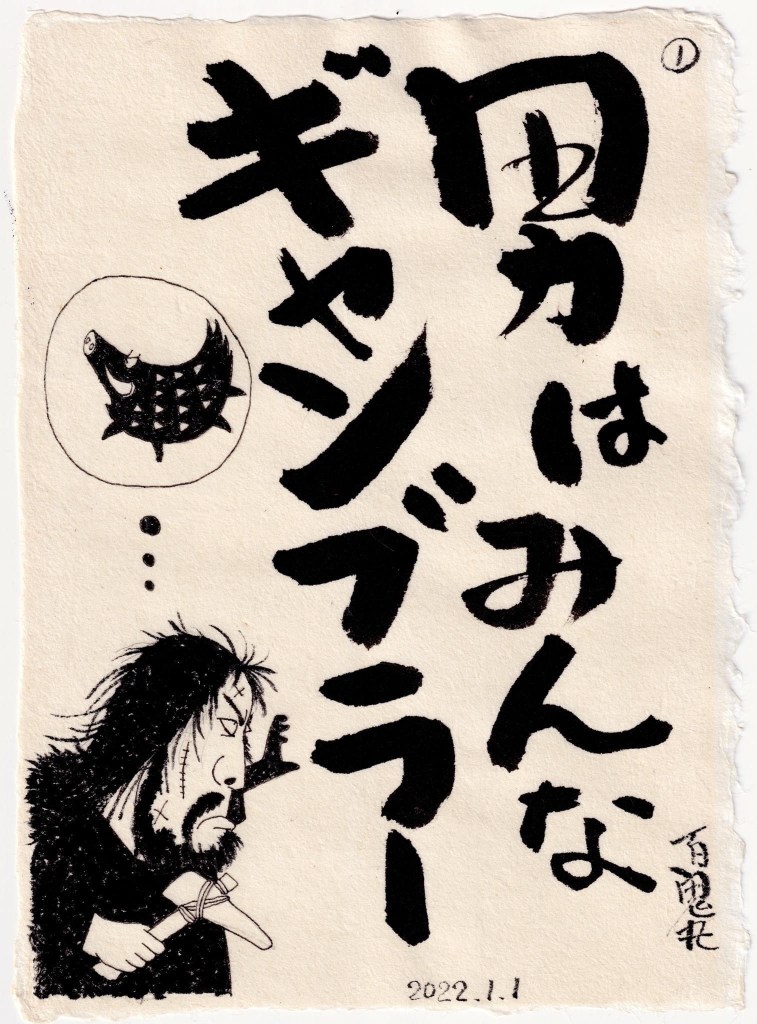 ①
男はみんな
ギャンブラー
百鬼丸
2022.1.1